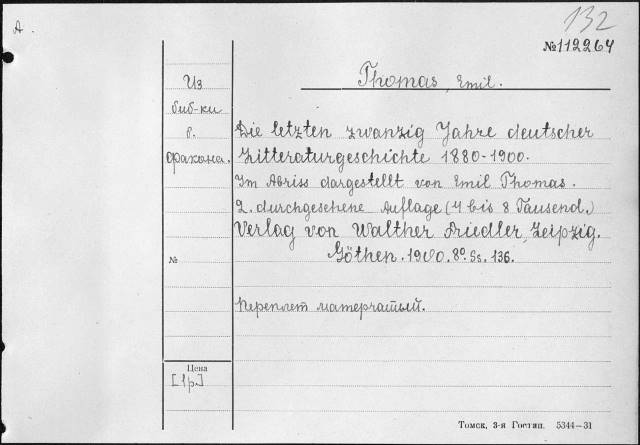 А.
132
№112264
Из
биб-ки
в.
фракена.
Thomas, Emil.
Die letzten zwanzig Jahre deutscher
Litteraturgeschichte 1880-1900.
Im Abriss dargestellt von Emil Thomas.
2. durchgesehene Auflage (4 bis 8 Tausend.)
Verlag von Walther Fiedler, Leipzig.
Göthen. 1900. 8º. Ss. 136.
№
Переплет матерчатый.
Цена
[1р.]
Томск, 3-я Гостип. 5344—31